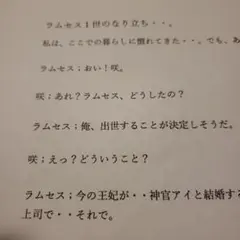 ラムセス1世のなり立ち・・。
私は、ここでの暮らしに慣れてきた・・。でも、あ
ラムセス；おい！咲。
咲；あれ？ラムセス、どうしたの？
ラムセス；俺、出世することが決定しそうだ。
咲；えっ？どういうこと？
ラムセス；今の王妃が・・神官アイと結婚す
上司で・・それで。